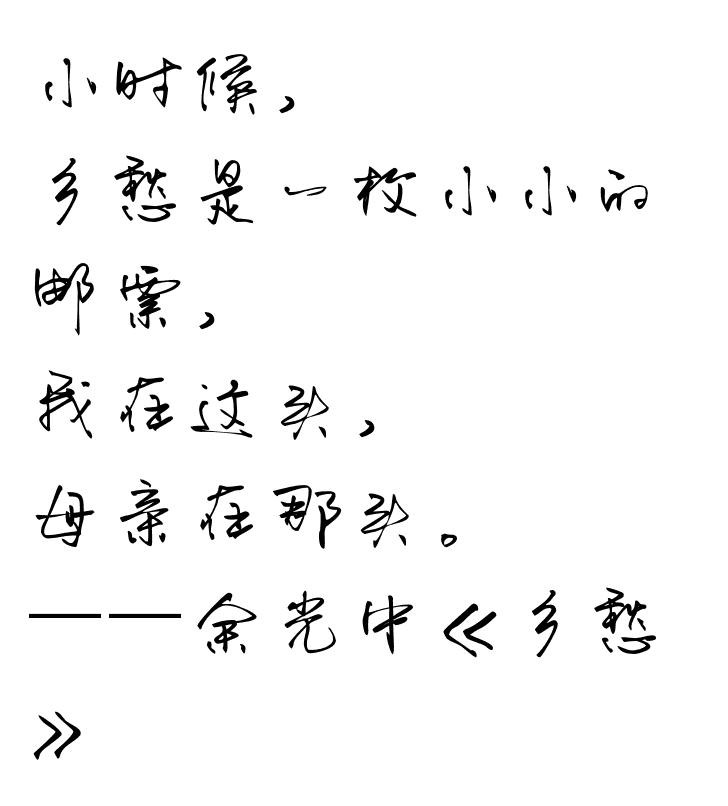 小时候，
乡愁是一枚小小的
邮票，
我在这头，
母亲在那头。
——余光中《乡愁
》